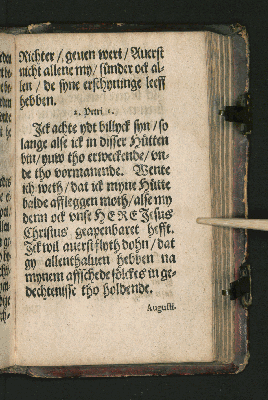 Richter / geuen wert / Auerst
nicht allene my / sünder ock al-
len / de syne erschyninge leeff
hebben.
2. Petri 1.
Ick achte ydt billyck syn / so
lange alse ick in disser Hütten
bin / yuw tho erweckende / vn-
de tho vormanende. Wente
ich weth / dat ick myne Hütte
balde affleggen moth / alse my
denn ock vnse HERE Jesus
Christus geapenbaret hefft.
Ick wil auerst flyth dohn / dat
gy allenthaluen hebben na
mynem affschede sölckes in ge-
dechtenisse tho holdende.
Augusti.